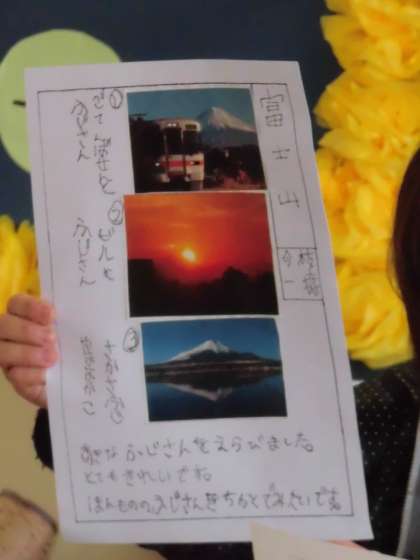 富士山
①ごてんばせんと
ふじさん
②ビルと
ふじさん
③さかさふじ
ふじさんをえらびました。
とてもきれいです。
ほんもののふじさんをちかくでみたいです。